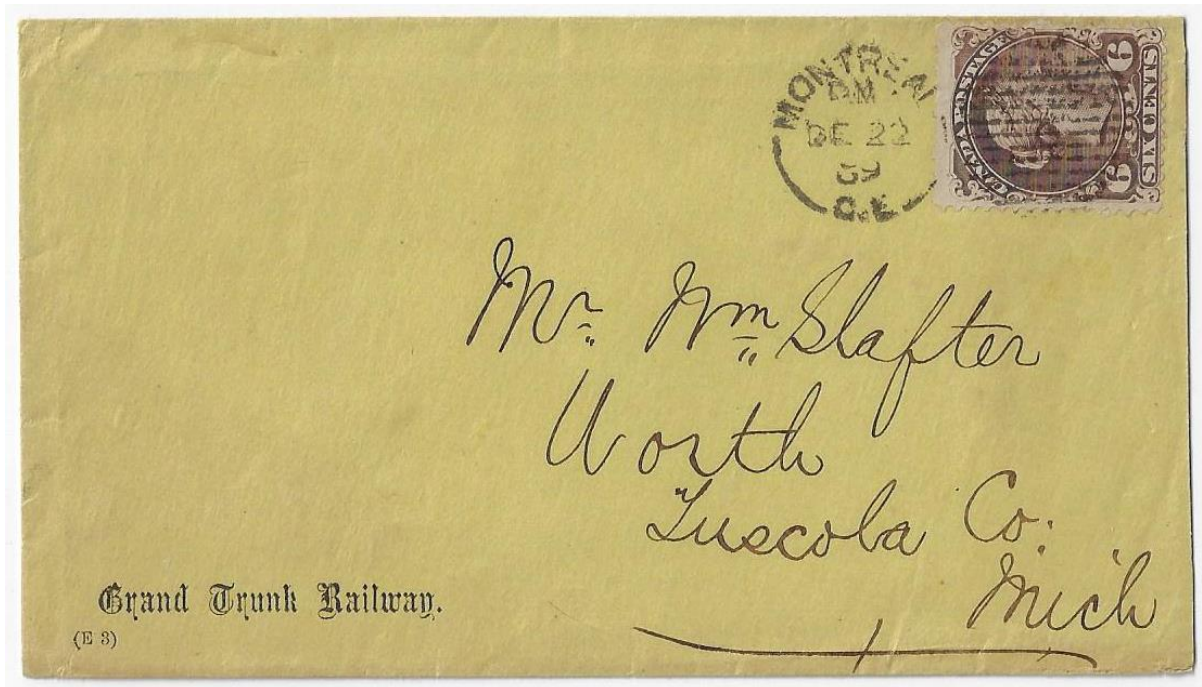 MONTREAL
PM
DE 22
69
C.E
CANADA POSTAGE
SIX CENTS
6 6
Mr. Wm Slafter
Worth
Tuscola Co.
Mich
Grand Trunk Railway.
(E 3)